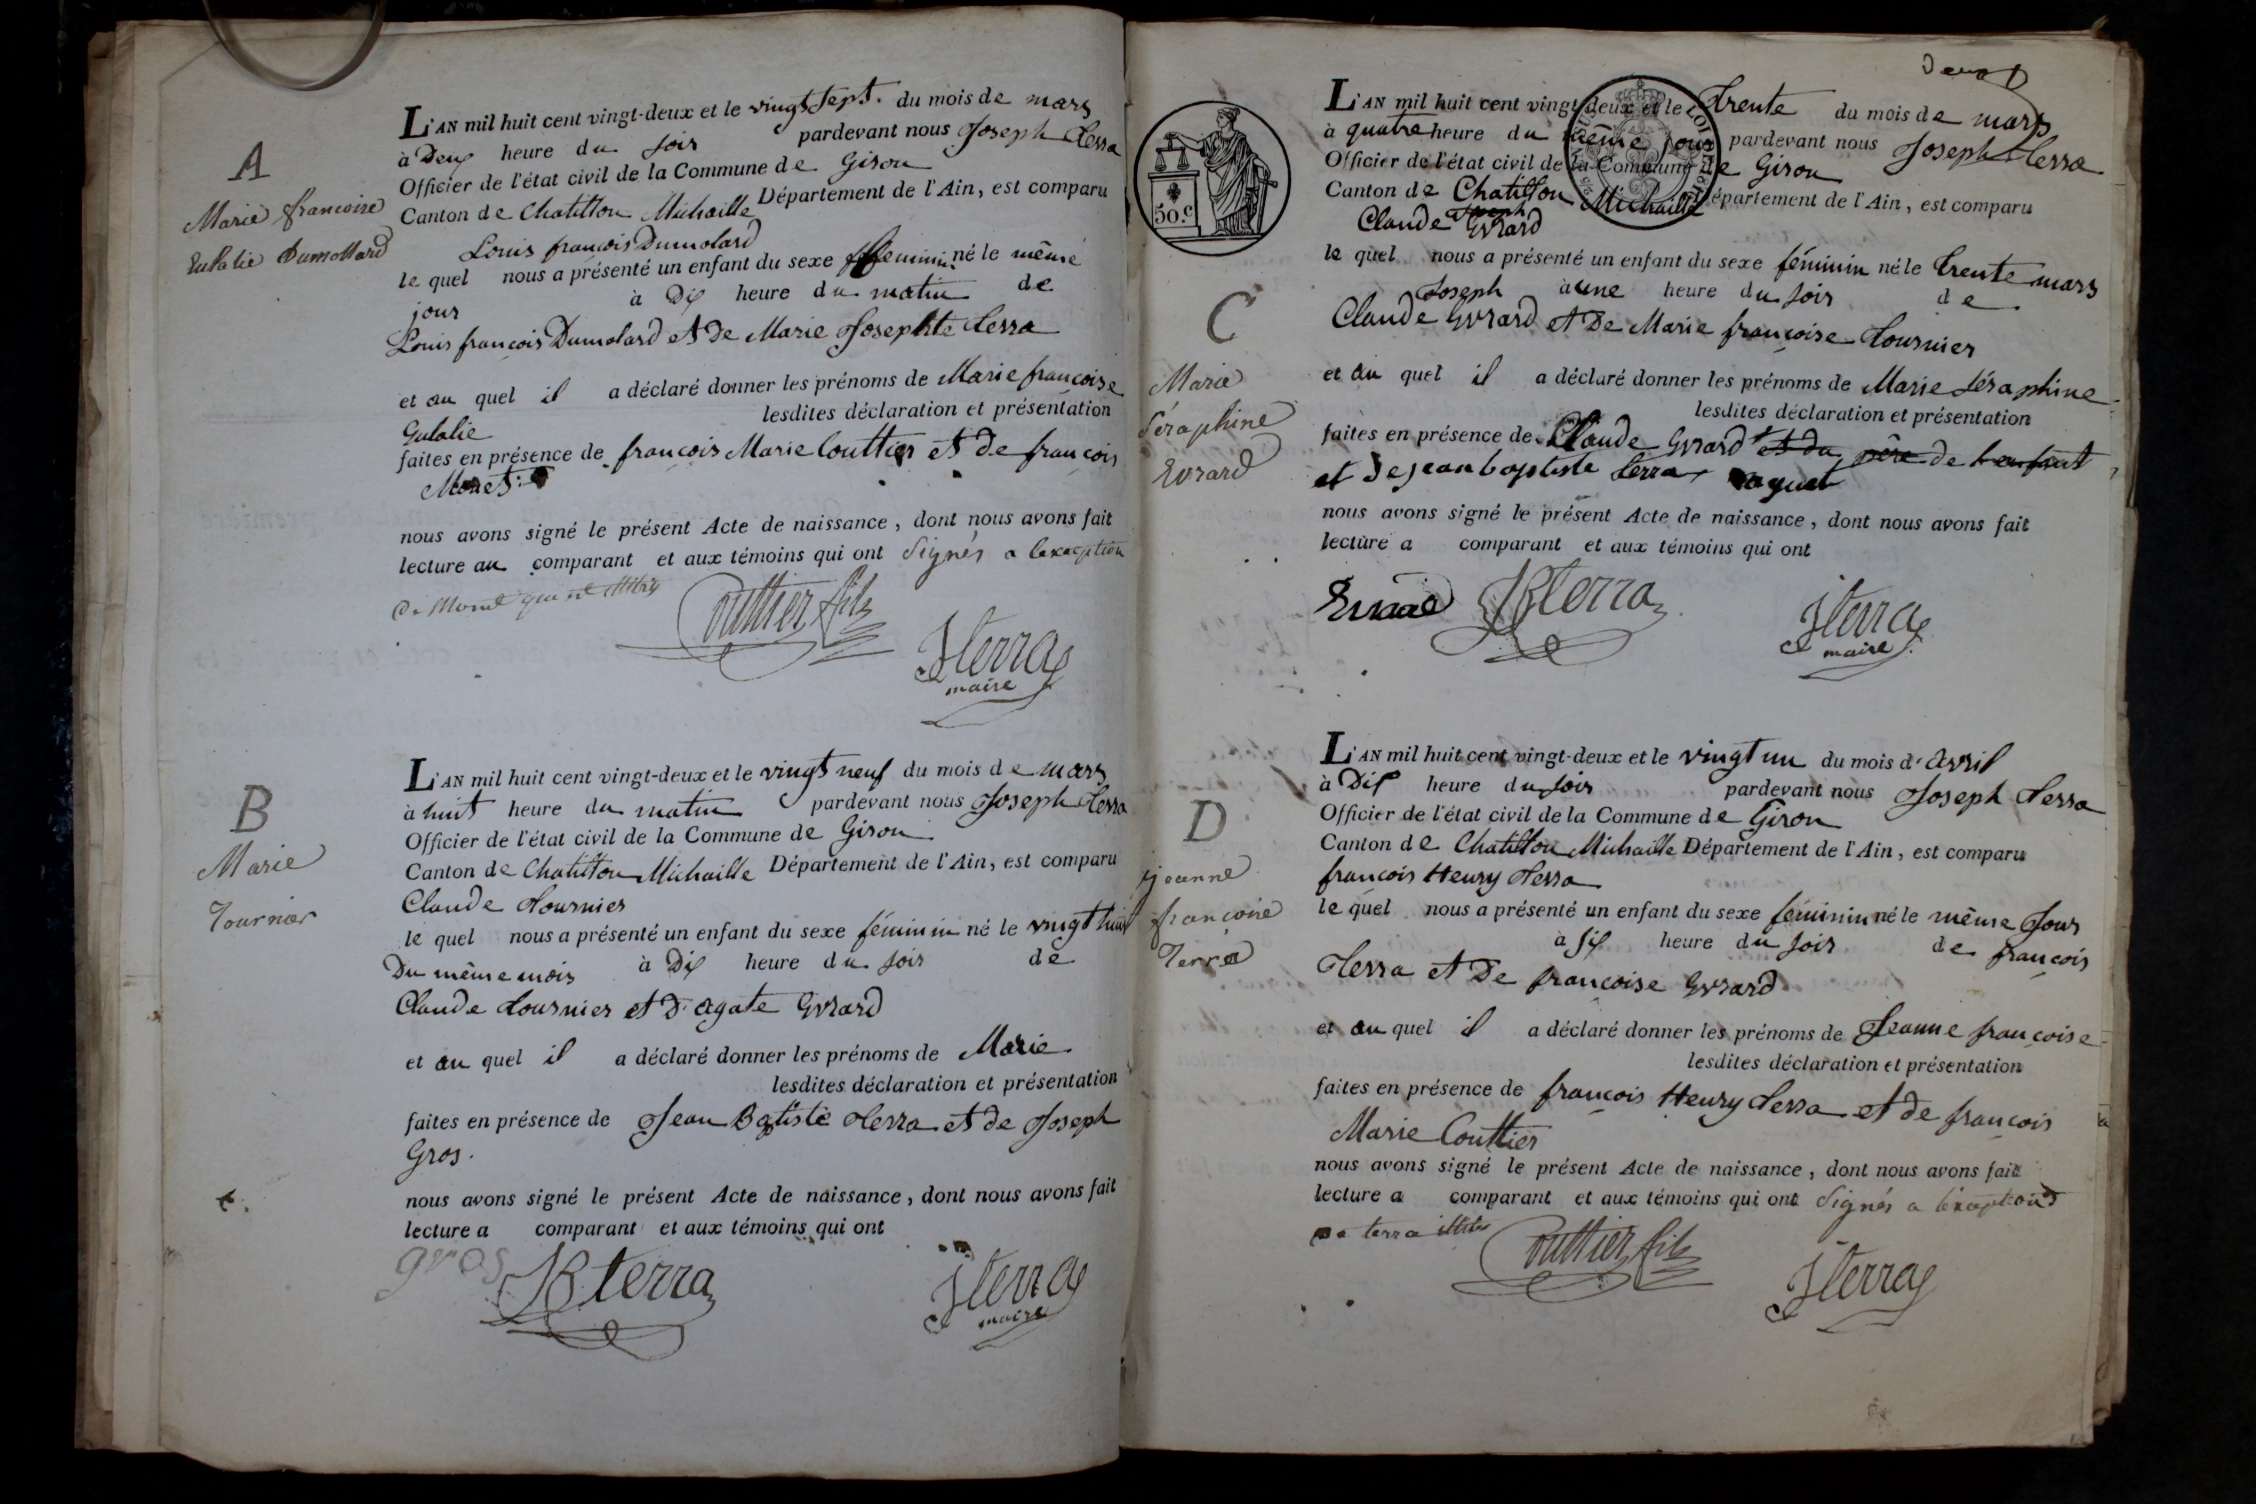 A
Marie francoise
Eulalie Dumollard
L'AN mil huit cent vingt-deux et le vingt sept. du mois de mars
à Deux heure du soir pardevant nous Joseph Terra
Officier de l'état civil de la Commune de Giron
Canton de Chatillon Michaille Département de l'Ain, est comparu
Louis françois Dumolard
le quel nous a présenté un enfant du sexe féminin né le même
jour à Dix heure du matin de
Louis françois Dumolard et de Marie Josephte Terra
et au quel il a déclaré donner les prénoms de Marie françoise
Eulalie lesdites déclaration et présentation
faites en présence de françois Marie Couttier et de françois
Monet
nous avons signé le présent Acte de naissance, dont nous avons fait
lecture au comparant et aux témoins qui ont signés a lexception
de Monet
Couttier fils
J terra
maire
B
Marie
Tournier
L'AN mil huit cent vingt-deux et le vingt neuf du mois de mars
à huit heure du matin pardevant nous Joseph Terra
Officier de l'état civil de la Commune de Giron
Canton de Chatillon Michaille Département de l'Ain, est comparu
Claude Tournier
le quel nous a présenté un enfant du sexe féminin né le vingt huit
Du même mois à Dix heure du soir de
Claude Tournier et D'agate Evrard
et au quel il a déclaré donner les prénoms de Marie
lesdites déclaration et présentation
faites en présence de Jean Batiste Terra et de Joseph
Gros.
nous avons signé le présent Acte de naissance, dont nous avons fait
lecture a comparant et aux témoins qui ont
gros
JB terra
J terra
maire
50.c
C
Marie
Séraphine
Evrard
L'AN mil huit cent vingt-deux et le Trente du mois de mars
à quatre heure du même jour pardevant nous Joseph Terra
Officier de l'état civil de la Commune de Giron
Canton de Chatillon Michaille Département de l'Ain, est comparu
Joseph
Claude Evrard
le quel nous a présenté un enfant du sexe féminin né le Trente mars
Joseph à une heure du soir de
Claude Evrard et De Marie françoise Tournier
et au quel il a déclaré donner les prénoms de Marie Séraphine
lesdites déclaration et présentation
faites en présence de Claude Evrard et du père de l'enfant
et de jean baptiste terra
nous avons signé le présent Acte de naissance, dont nous avons fait
lecture a comparant et aux témoins qui ont
Evrard
JB terra
J terra
maire
D
jeanne
françoise
Terra
L'AN mil huit cent vingt-deux et le vingt un du mois d'avril
à Dix heure du soir pardevant nous Joseph Terra
Officier de l'état civil de la Commune de Giron
Canton de Chatillon Michaille Département de l'Ain, est comparu
françois Henry Terra
le quel nous a présenté un enfant du sexe féminin né le même Jour
à six heure du soir de françois
Terra et De françoise Evrard
et au quel il a déclaré donner les prénoms de Jeanne françoise
lesdites déclaration et présentation
faites en présence de françois Henry Terra et de françois
Marie Couttier
nous avons signé le présent Acte de naissance, dont nous avons fait
lecture a comparant et aux témoins qui ont signés a lexception
de terra
Couttier fils
J terra